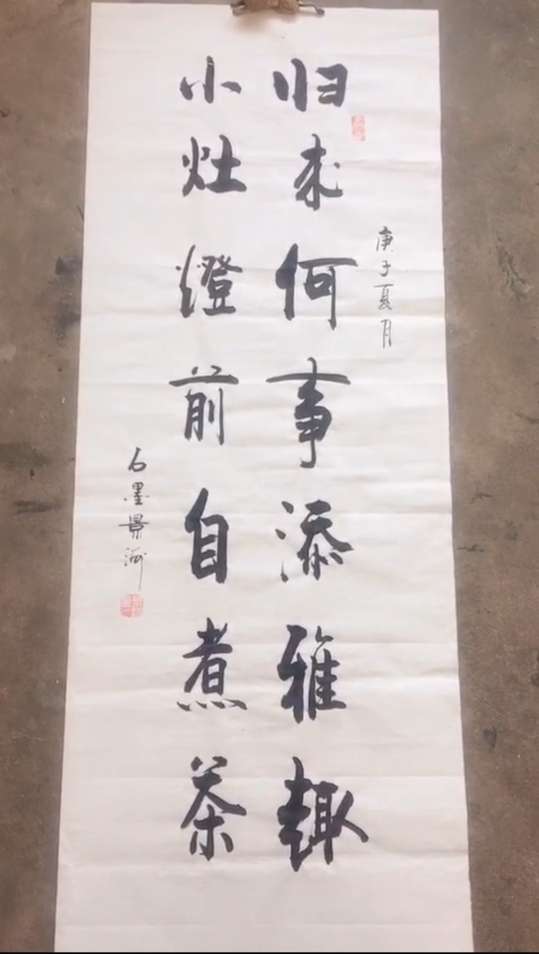 归来何事添雅趣
小灶燈前自煮茶
庚子夏月
石墨景河